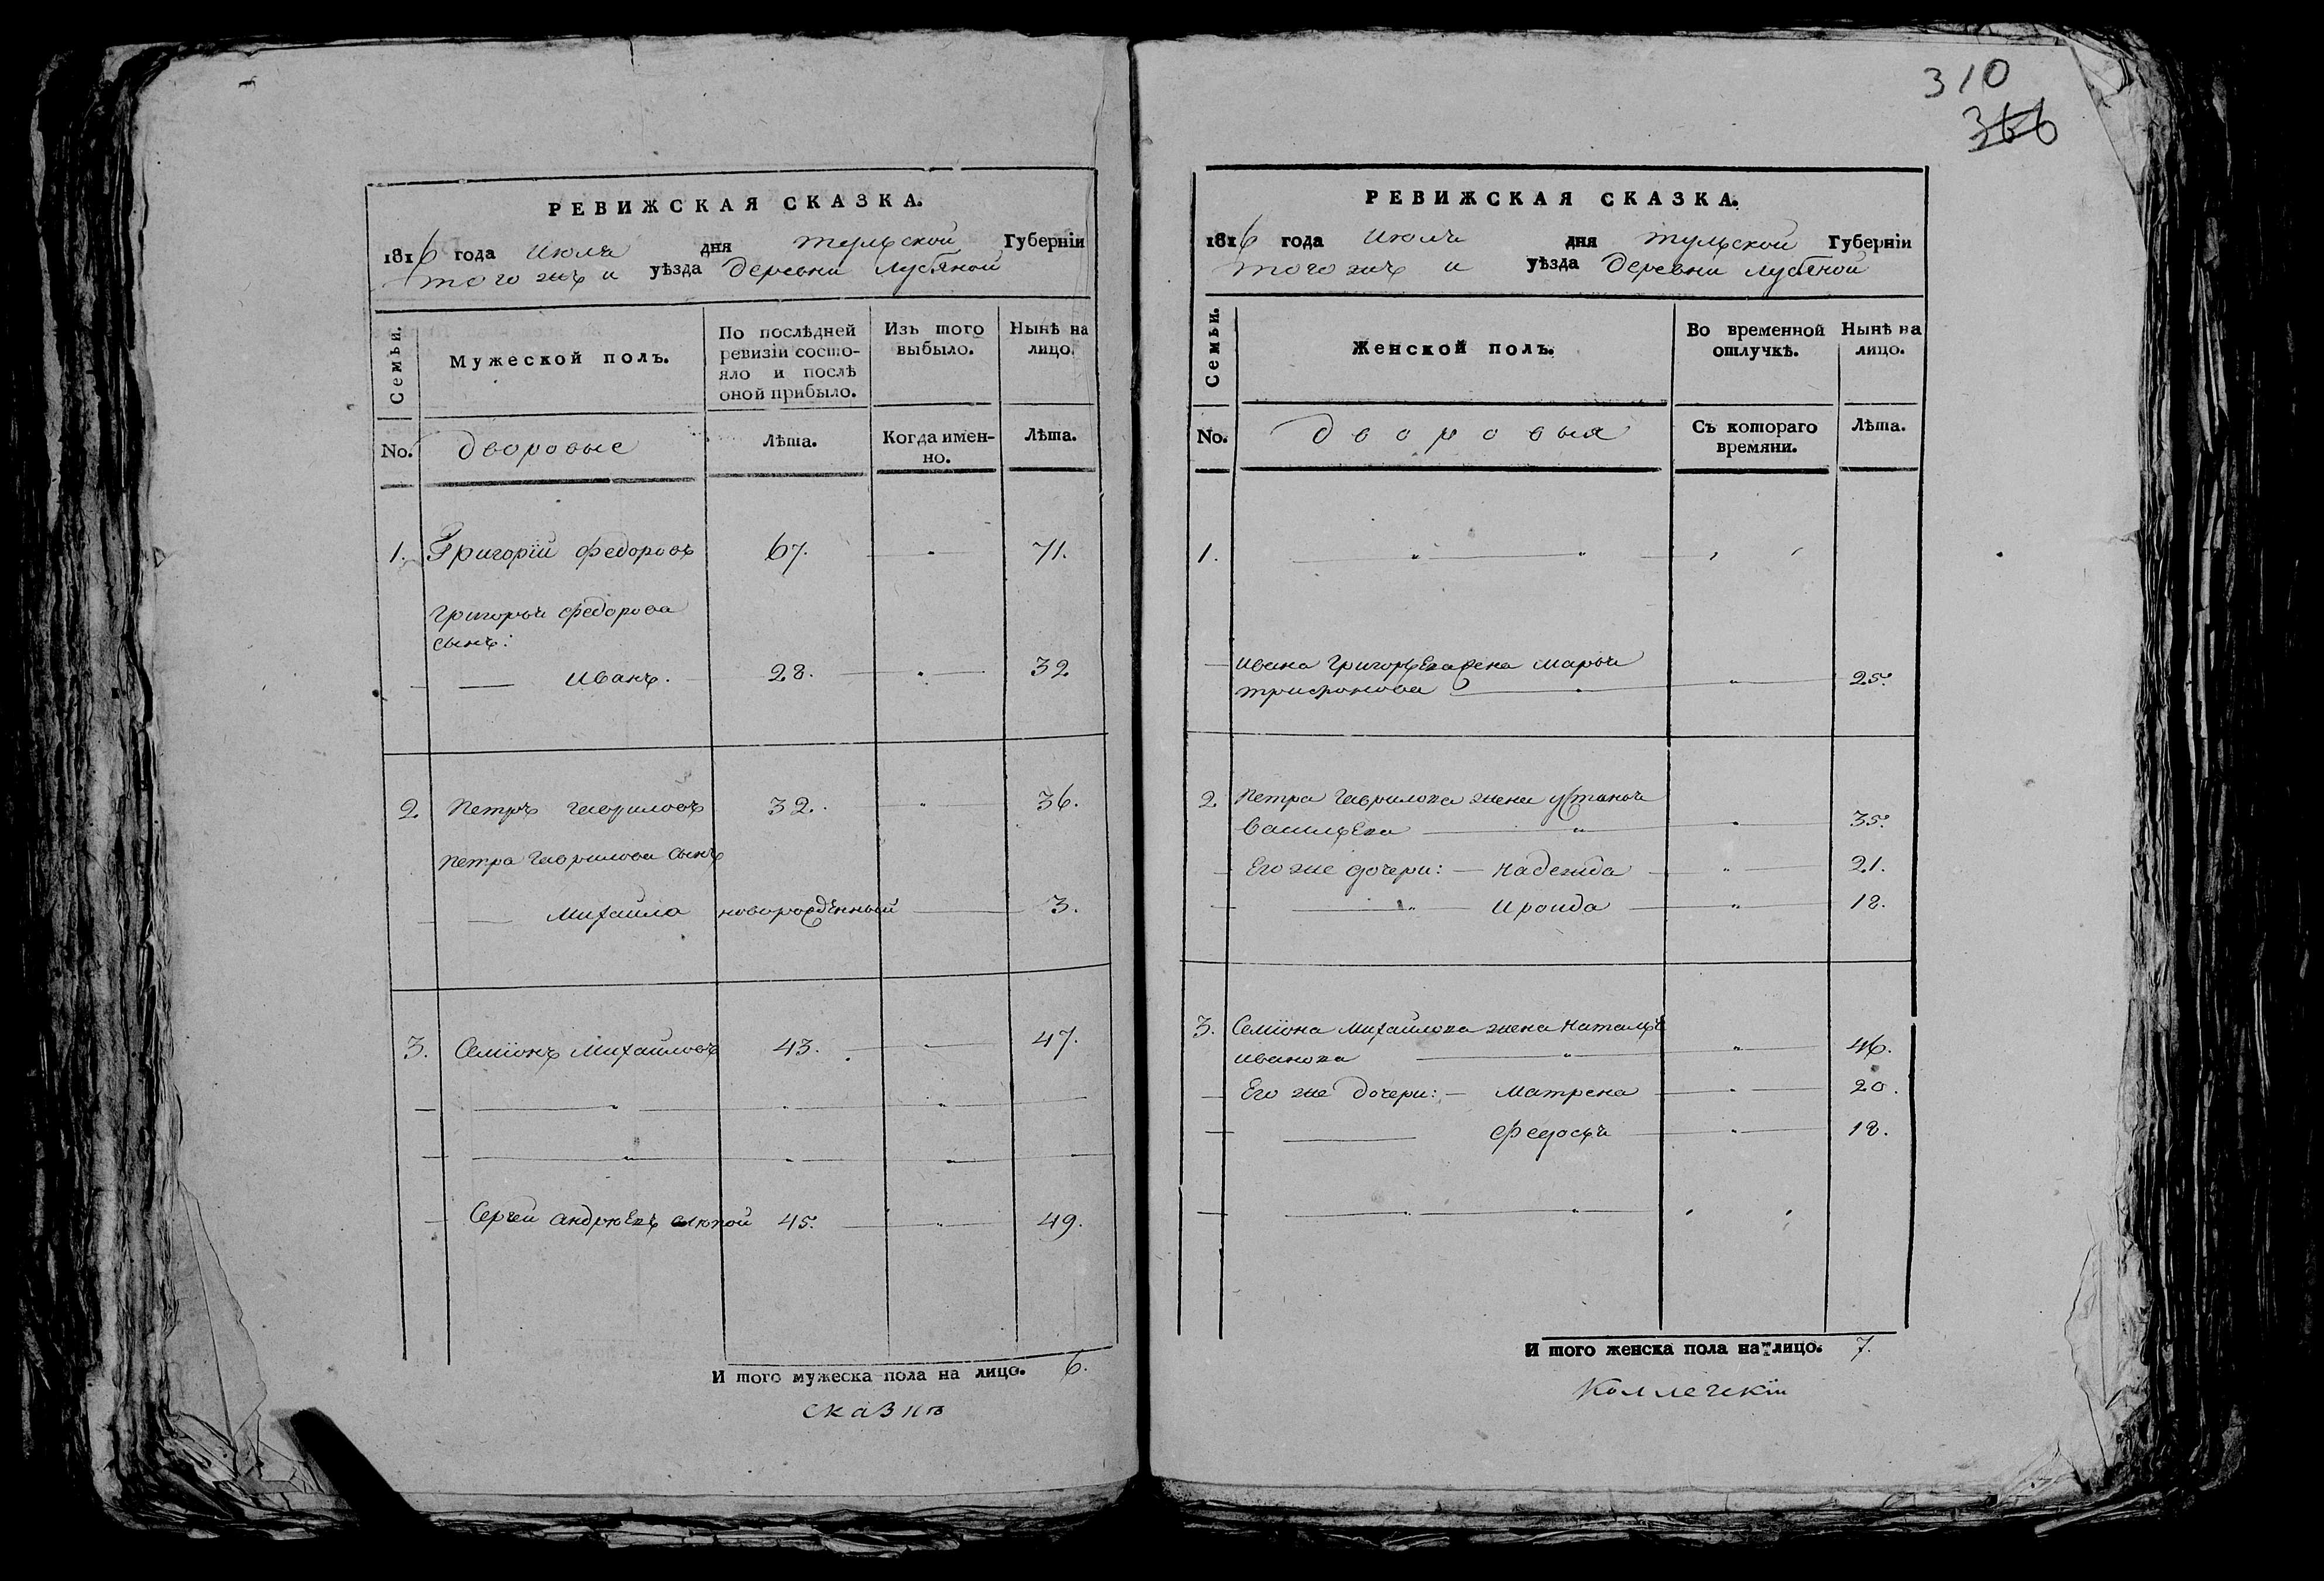 310
366
РЕВИЖСКАЯ СКАЗКА.
1816 года июля дня тульской Губерніи
того жъ и уѣзда деревни лубяной
Семьи.
Мужеской полъ.
По послѣдней ревизіи состо-
яло и послѣ
оной прибыло.
Изъ того
выбыло.
Нынѣ на
лицо.
No.
дворовые
Лѣта.
Когда имен-
но.
Лѣта.
1. Григорій федоровъ 67. 71.
григорья федорова
сынъ:
иванъ. 28. 32
2. петръ гавриловъ 32. 36.
петра гаврилова сынъ
михаила новорожденный 3.
3. семіонъ михайловъ 43. 47.
Сергей андрюевъ 45. 49.
И того мужеска пола на лицо. 6.
сказкѣ
РЕВИЖСКАЯ СКАЗКА.
1816 года июля дня тульской Губерніи
того жъ и уѣзда деревни лубяной
Семьи.
Женской полъ.
Во временной
отлучкѣ.
Нынѣ на
лицо.
No.
дворовыя
Съ котораго
времяни.
Лѣта.
1.
ивана григорьева жена марья
трифонова 25.
2. петра гаврилова жена устинья
васильева 35.
Его же дочери: надежда 21.
ироида 18.
3. Семіона михайлова жена наталья
иванова 46.
Его же дочери: матрена 20.
федосья 18.
И того женска пола на лицо. 7.